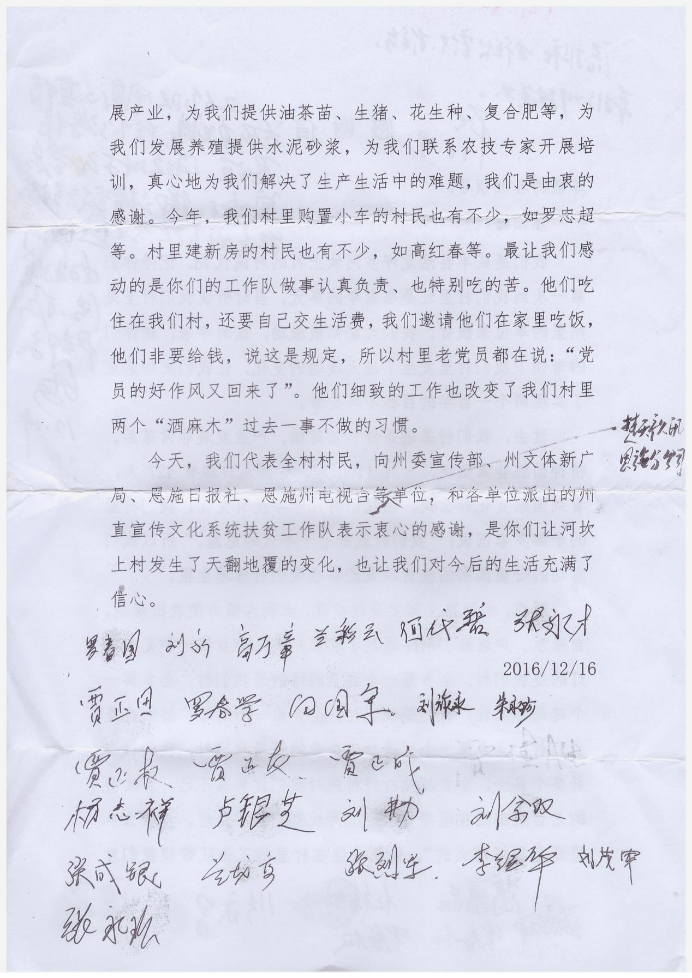 展产业，为我们提供油茶苗、生猪、花生种、复合肥等，为
我们发展养殖提供水泥砂浆，为我们联系农技专家开展培
训，真心地为我们解决了生产生活中的难题，我们是由衷的
感谢。今年，我们村里购置小车的村民也有不少，如罗忠超
等。村里建新房的村民也有不少，如高红春等。最让我们感
动的是你们的工作队做事认真负责、也特别吃的苦。他们吃
住在我们村，还要自己交生活费，我们邀请他们在家里吃饭，
他们非要给钱，说这是规定，所以村里老党员都在说：“党
员的好作风又回来了”。他们细致的工作也改变了我们村里
两个“酒麻木”过去一事不做的习惯。
今天，我们代表全村村民，向州委宣传部、州文体新广
局、恩施日报社、恩施州电视台等单位，和各单位派出的州
直宣传文化系统扶贫工作队表示衷心的感谢，是你们让河坎
上村发生了天翻地覆的变化，也让我们对今后的生活充满了
信心。
刘永 高万章 兰彩云 何代碧 张永才
2016/12/16
贾正田 罗春学
贾正友
杨志祥 卢银芝 刘勋
张成银